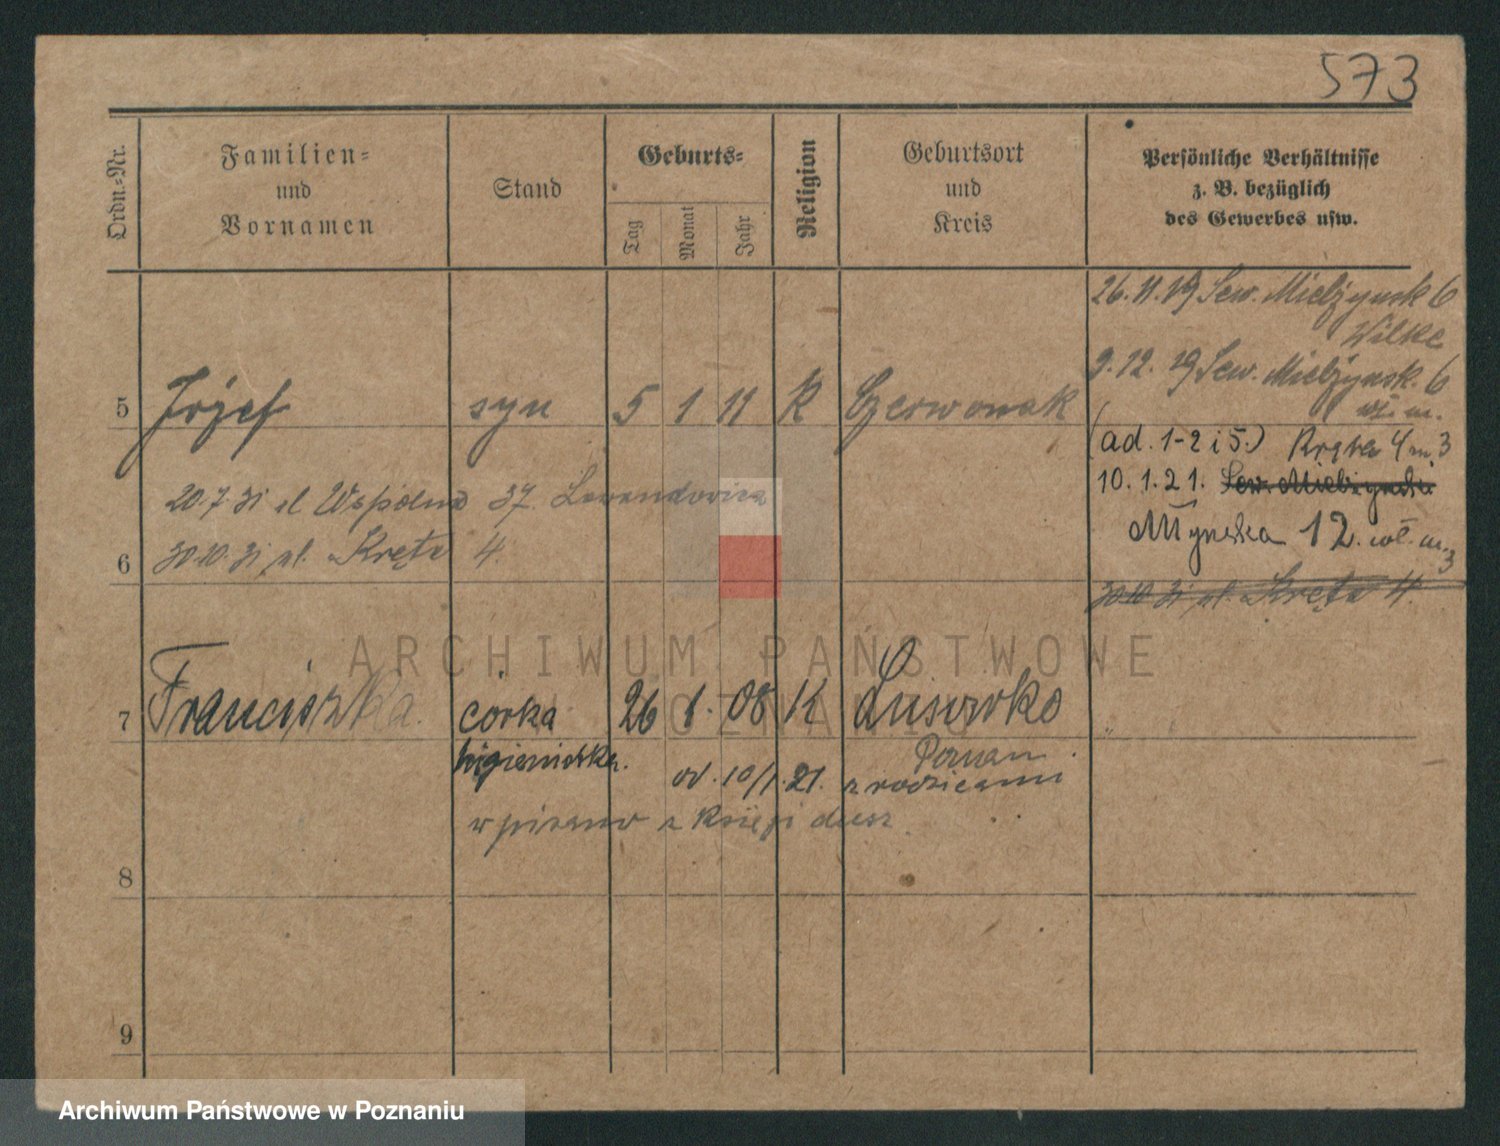 573
Ordn.-Nr.
Familien-
und
Vornamen
Stand
Geburts-
Tag
Monat
Jahr
Religion
Geburtsort
und
Kreis
Persönliche Verhältnisse
z. B. bezüglich
des Gewerbes usw.
26.11.19 Sew. Mielżynsk 6
Wilke
9.12.19 Sew. Mielżynsk. 6
wł. m.
5 Józef syn 5 1 11 K Czerwonak
(ad. 1-2 i 5.) Kręta 4 m 3
10.1.21. Sew. Mielżynski
Młynska 12. wł. m. 3
20.7.31 ul Wspólna 37 Lewandowicz
6 30.10.31 ul. Kręta 4.
30.10.31 ul. Kręta 4.
ARCHIWUM PAŃSTWOWE
W POZNANIU
7 Franciszka córka 26 1. 08 K Lusówko
higienistka. Poznan
od. 10/1.21. z rodzicami
wpisano z Księgi dusz
8
9
Archiwum Państwowe w Poznaniu